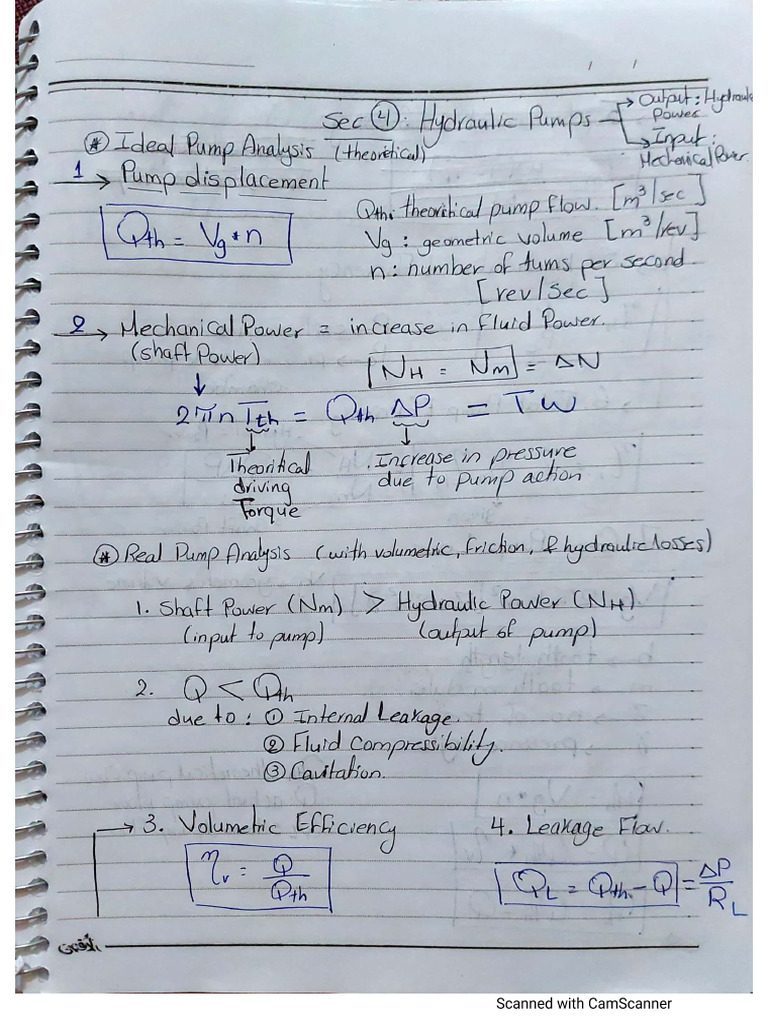 Sec ④: Hydraulic Pumps → Output: Hydraulic Power
→ Input: Mechanical Power
⊛ Ideal Pump Analysis (theoretical)
1 → Pump displacement
Qth = Vg * n
Qth: theoritical pump flow. [m³/sec]
Vg: geometric volume [m³/rev]
n: number of turns per second
[rev/sec]
2 → Mechanical Power = increase in fluid Power.
(shaft Power)
NH = Nm = ΔN
2πn Tth = Qth ΔP = Tω
Theoritical driving Torque
. Increase in pressure due to pump action
⊛ Real Pump Analysis (with volumetric, friction, & hydraulic losses)
1. Shaft Power (Nm) > Hydraulic Power (NH)
(input to pump) (output of pump)
2. Q < Qth
due to: ① Internal Leakage.
② Fluid Compressibility.
③ Cavitation.
→ 3. Volumetric Efficiency 4. Leakage Flow.
ηv = Q/Qth QL = Qth - Q = ΔP/RL
Scanned with CamScanner